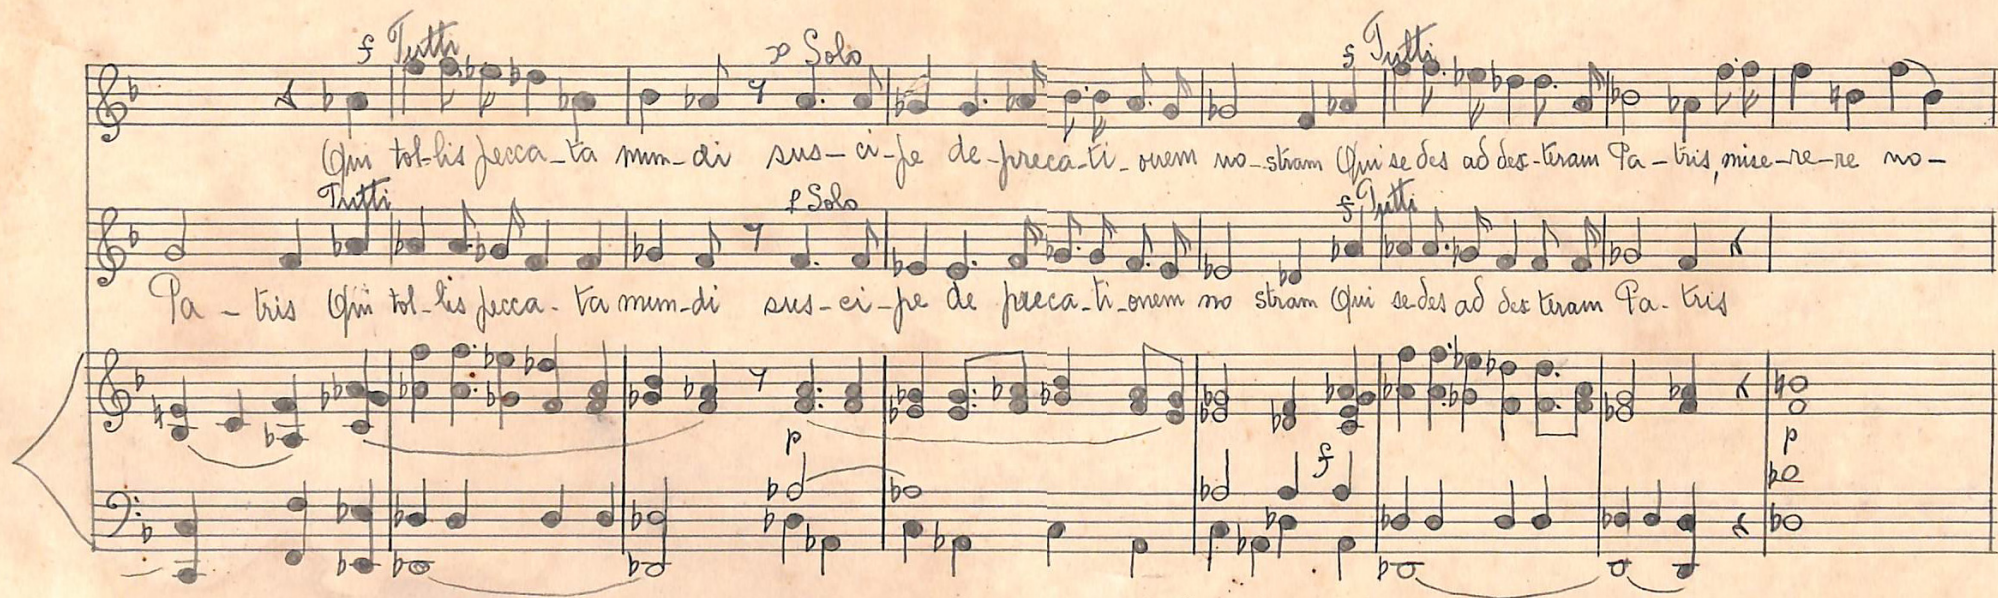 f Tutti p Solo f Tutti
Qui tol-lis pecca-ta mun-di sus-ci-pe de-preca-ti-onem no-stram Qui se des ad dex-teram Pa-tris, mise-re-re no-
Tutti p Solo f Tutti
Pa-tris Qui tol-lis pecca-ta mun-di sus-ci-pe de preca-ti-onem no stram Qui se-des ad dex teram Pa-tris
p f p